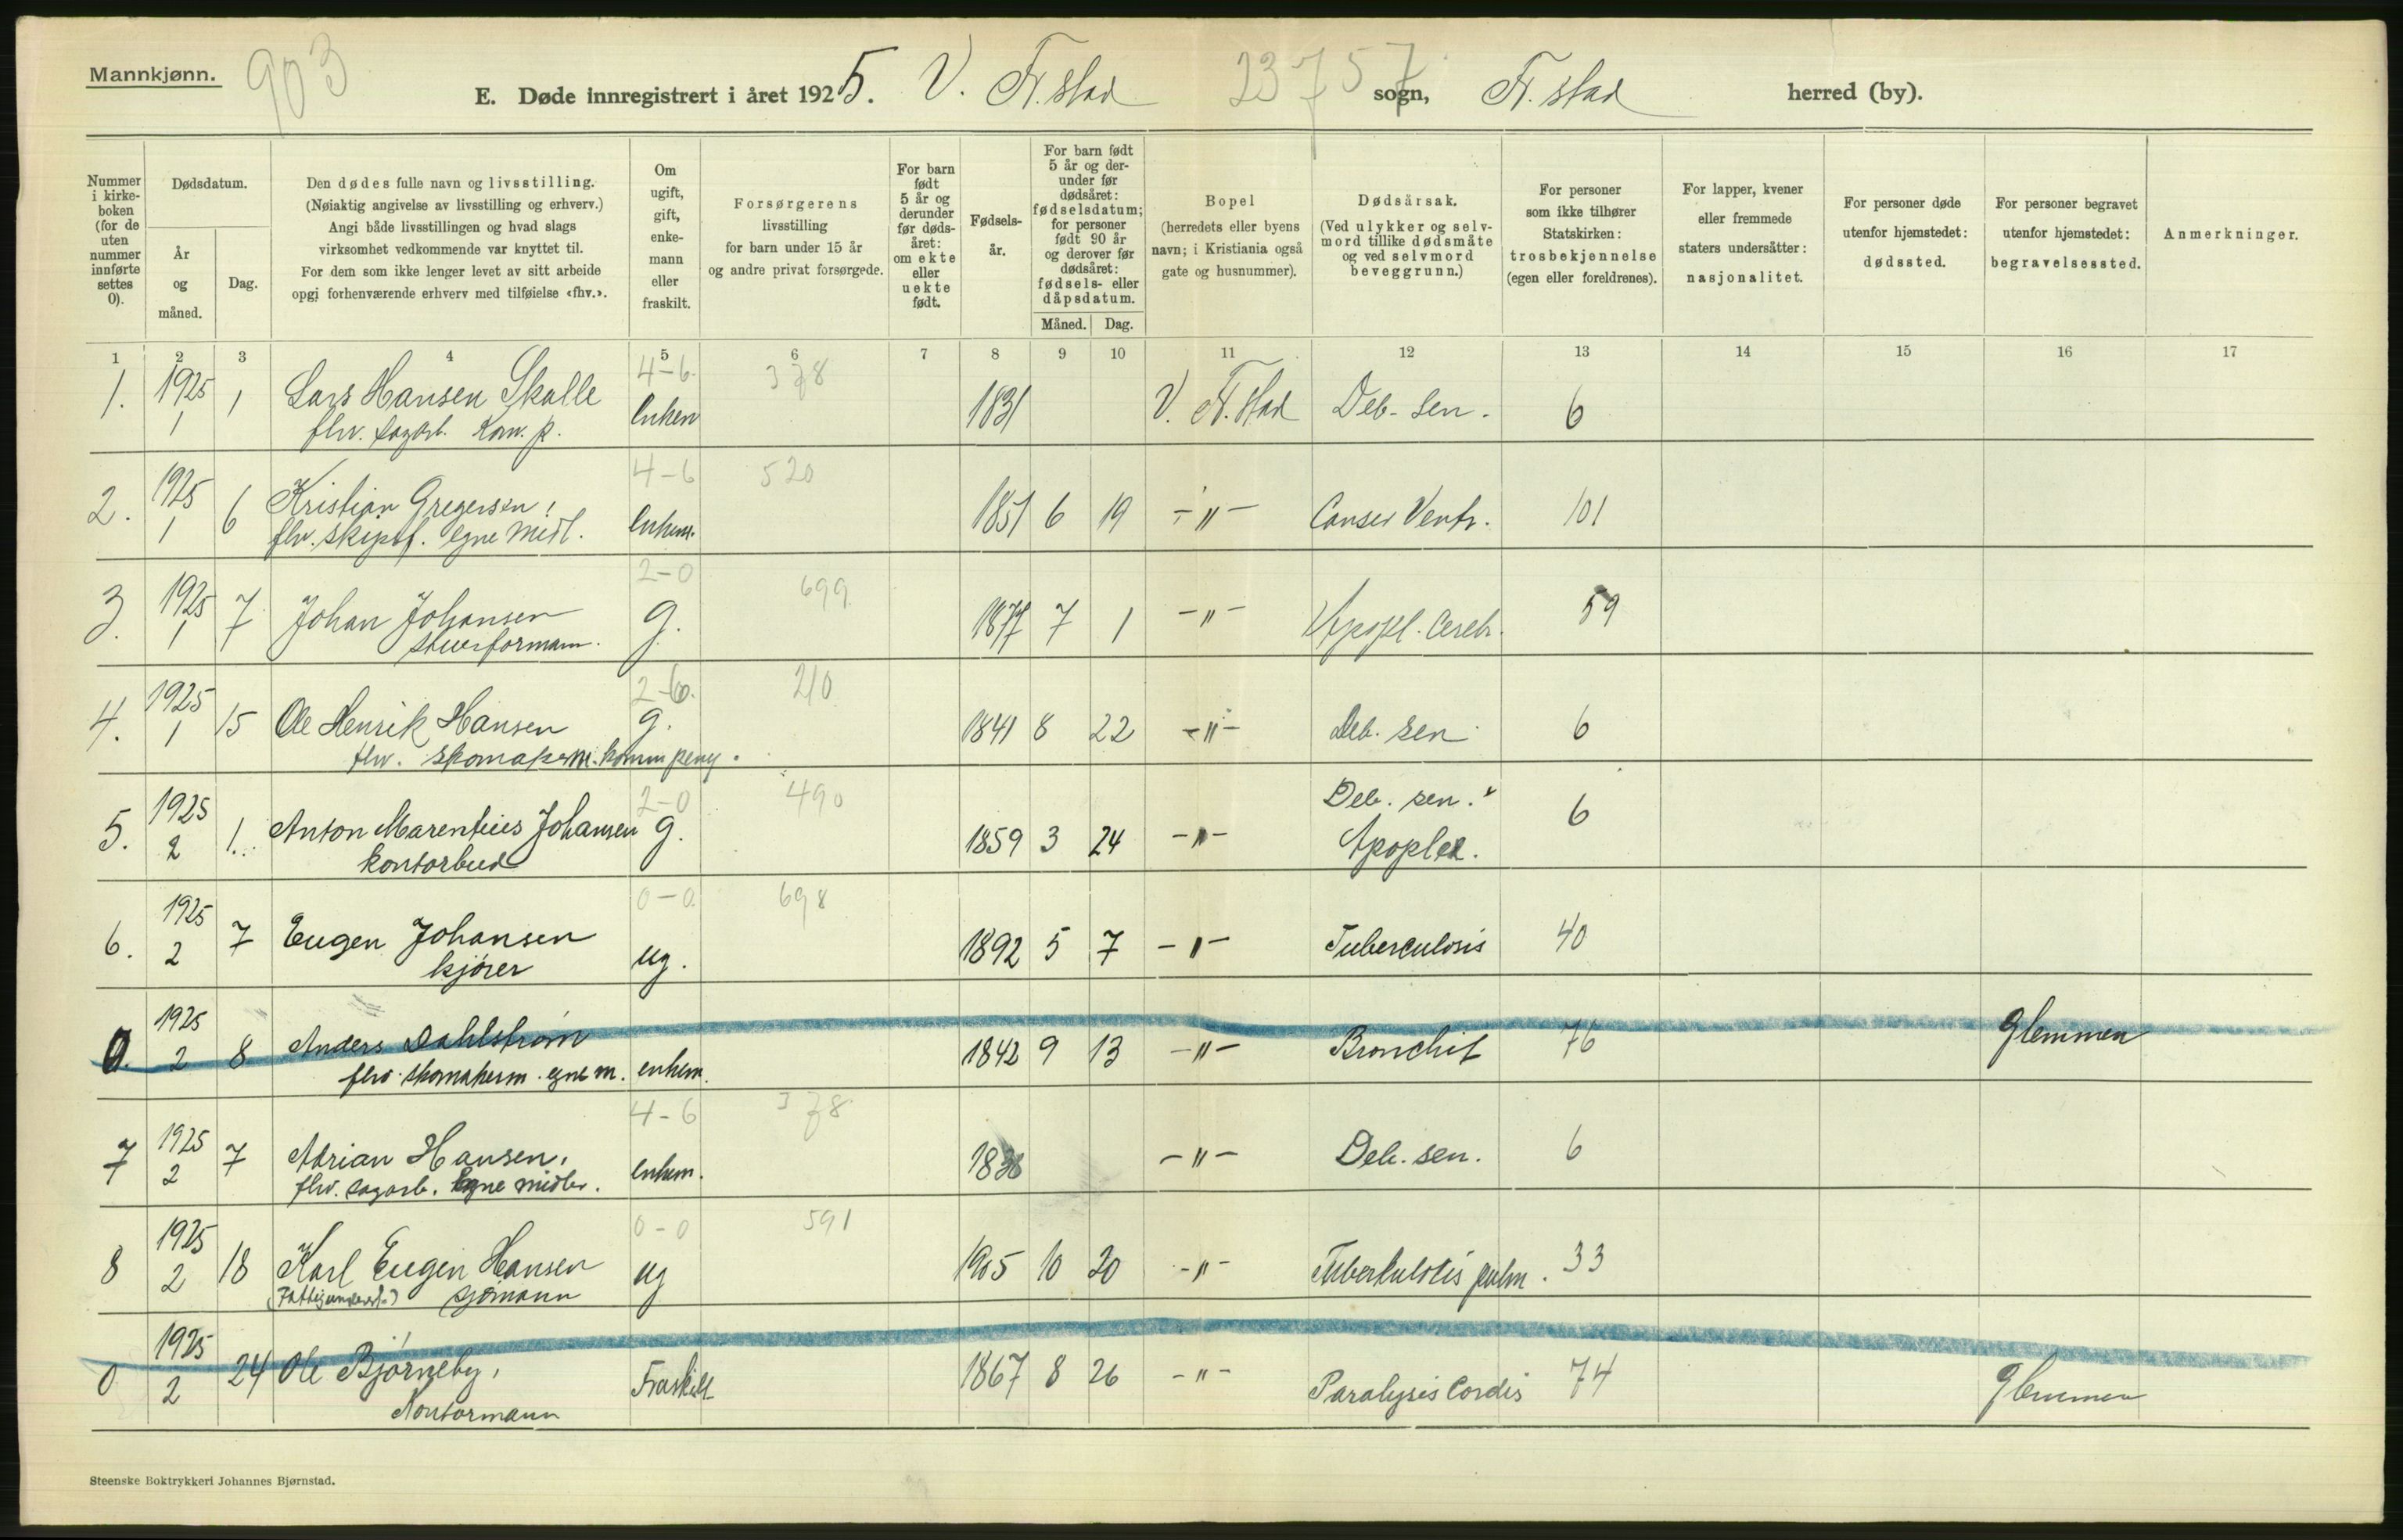 Mannkjønn.
903
E. Døde innregistrert i året 1925. V. Fr.stad 23757 sogn, Fr. stad herred (by).
Nummer i kirke-boken (for de uten nummer innførte settes 0).
Dødsdatum.
År og måned.
Dag.
Den dødes fulle navn og livsstilling.
(Nøiaktig angivelse av livsstilling og erhverv.)
Angi både livsstillingen og hvad slags
virksomhet vedkommende var knyttet til.
For dem som ikke lenger levet av sitt arbeide
opgi forhenværende erhverv med tilføielse «fhv.».
Om ugift, gift, enke-mann eller fraskilt.
Forsørgerens
livsstilling
for barn under 15 år
og andre privat forsørgede.
For barn født 5 år og derunder før døds-året: om ekte eller uekte født.
Fødsels-år.
For barn født 5 år og der-under før dødsåret: fødselsdatum; for personer født 90 år og derover før dødsåret: fødsels- eller dåpsdatum.
Måned. Dag.
Bopel
(herredets eller byens
navn; i Kristiania også
gate og husnummer).
Dødsårsak.
(Ved ulykker og selv-
mord tillike dødsmåte
og ved selvmord
beveggrunn.)
For personer
som ikke tilhører
Statskirken:
trosbekjennelse
(egen eller foreldrenes).
For lapper, kvener
eller fremmede
staters undersåtter:
nasjonalitet.
For personer døde
utenfor hjemstedet:
dødssted.
For personer begravet
utenfor hjemstedet:
begravelsessted.
Anmerkninger.
1 2 3 4 5 6 7 8 9 10 11 12 13 14 15 16 17
4-6. 378
1. 1925 1 Lars Hansen Skalle Enkem 1831 V. Fr. stad Deb. sen. 6
1 fhv. sagarb. Kom. p.
4-6 520
2. 1925 6 Kristian Gregersen, enkem. 1851 6 19 -"- Canser Ventr. 101
1 fhv. skipsf. egne midl.
2-0 699
3. 1925 7 Johan Johansen g. 1877 7 1 -"- Apopl. Cereb. 59
1 stuerformann.
2-6. 210
4. 1925 15 Ole Henrik Hansen g. 1841 8 22 -"- Deb. sen 6
1 fhv. skomakerm. komm peng.
2-0 490
5. 1925 1. Anton Marentius Johansen g. 1859 3 24 -"- Deb. sen. 6
2 kontorbud Apoplex.
0-0. 698
6. 1925 7 Eugen Johansen ug. 1892 5 7 -"- Tuberculosis 40
2 kjører
0. 1925 8 Anders Dahlstrøm enkem. 1842 9 13 -"- Bronchit 76 Glemmen
2 fhv. skomakerm. egne m.
4-6 378
7 1925 7 Adrian Hansen, enkem. -"- Deb. sen. 6
2 fhv. sagarb. Egne midler.
0-0 591
8 1925 18 Karl Eugen Hansen ug 1905 10 20 -"- Tuberkulosis pulm. 33
2 (Fattigunderst.) sjømann
0 1925 24 Ole Bjørneby, Fraskilt 1867 8 26 -"- Paralysis Cordis 74 Glemmen
2 Kontormann
Steenske Boktrykkeri Johannes Bjørnstad.